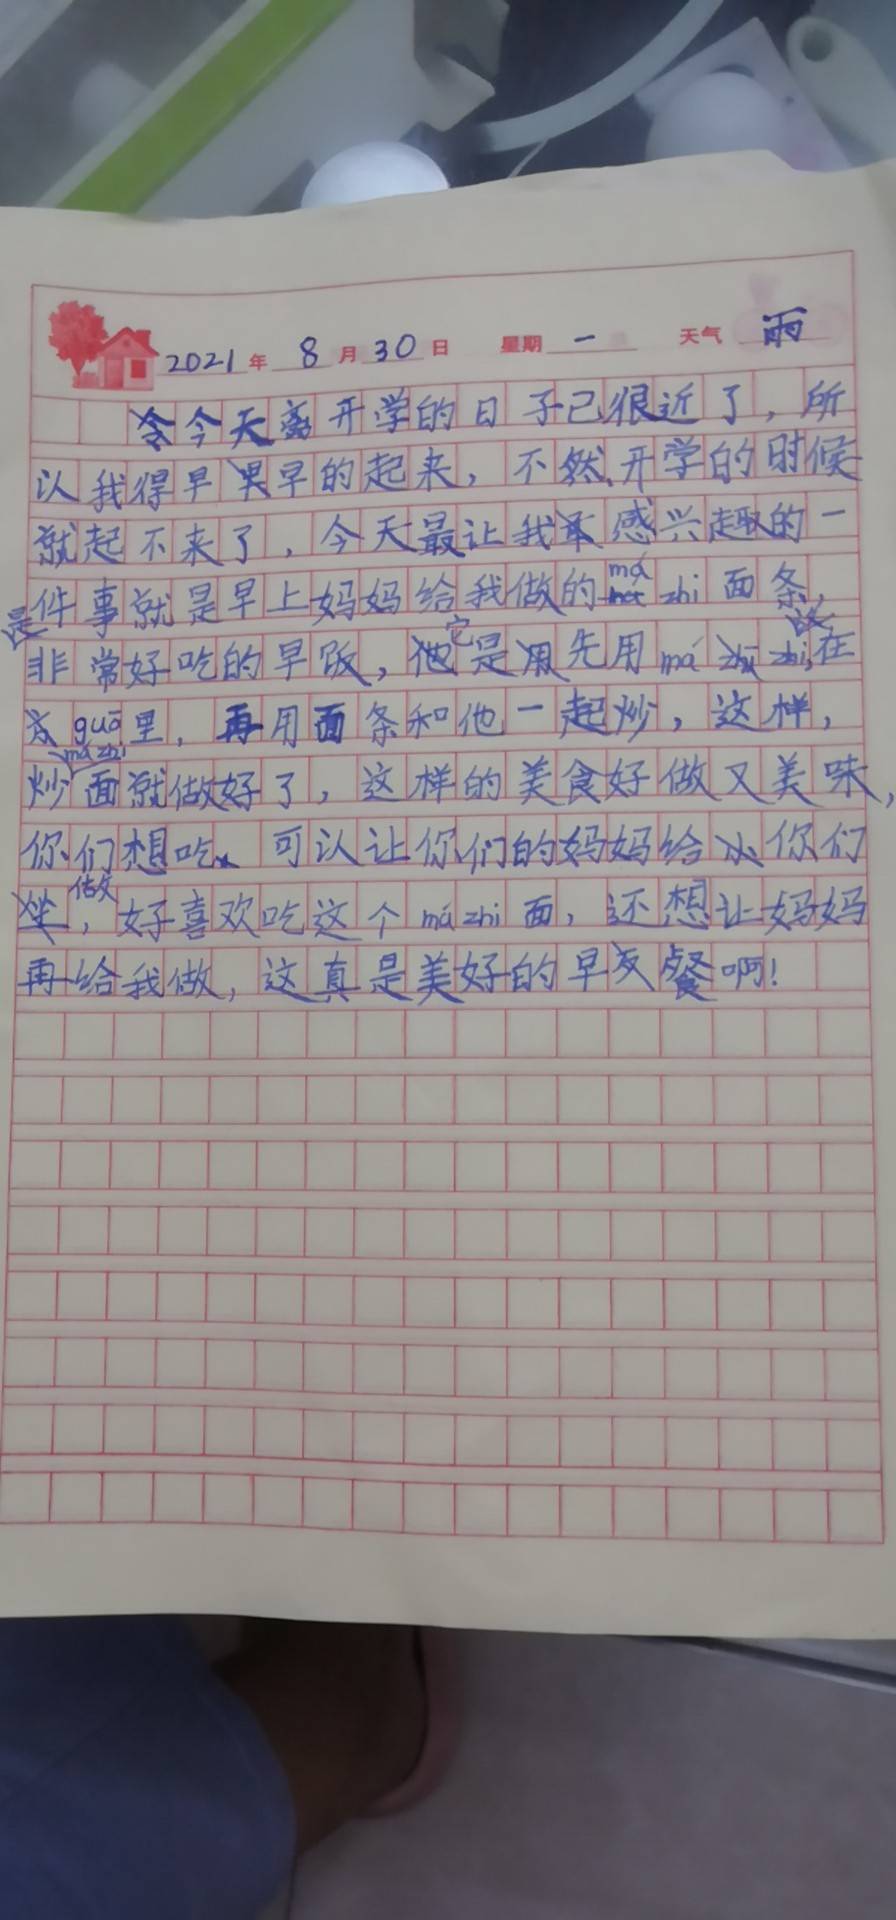 2021年 8月30日 星期一 天气 雨
今天离开学的日子已很近了，所
以我得早早的起来，不然开学的时候
就起不来了，今天最让我感兴趣的一
件事就是早上妈妈给我做的má zhi面条，
是非常好吃的早饭，它是先用má zhi放在
guō里，再用面条和他一起炒，这样，
炒má zhi面就做好了，这样的美食好做又美味，
你们想吃 可以让你们的妈妈给你们
做，好喜欢吃这个má zhi面，还想让妈妈
再给我做，这真是美好的早餐啊！